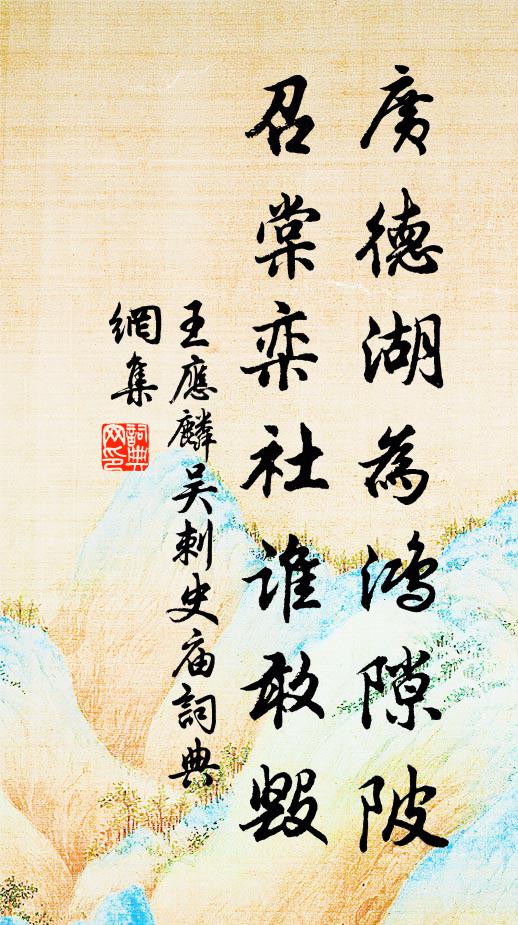 廣德湖為鴻隙陂
召棠栾社誰敢毀
王應麟吴刺史庙詞典
網集
詞典
网印